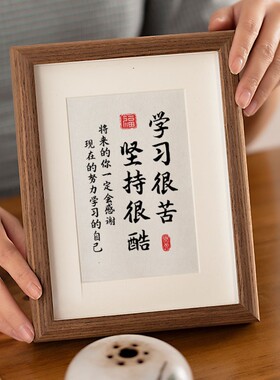 学习很苦
坚持很酷
将来的你一定会感谢
现在的努力学习的自己